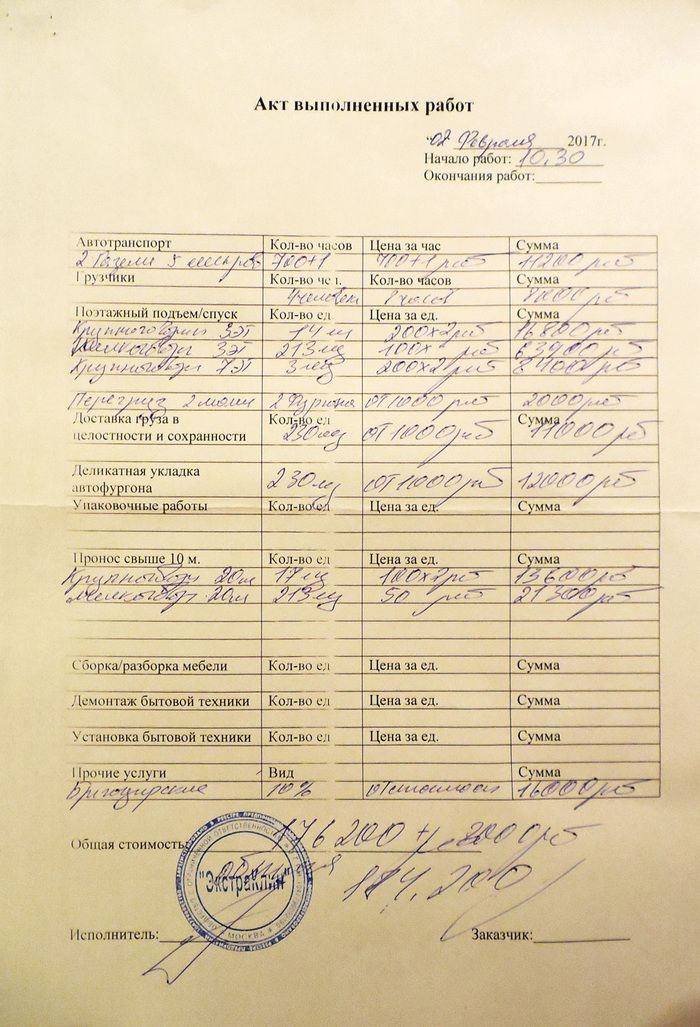 Акт выполненных работ
02 Февраля 2017г.
Начало работ: 10.30
Окончания работ:
Автотранспорт Кол-во часов Цена за час Сумма
2 Газели 5 метров 700+1 700+1 рб 11200 рб
Грузчики Кол-во чел. Кол-во часов Сумма
4 человек 8 часов 8200 рб
Поэтажный подъем/спуск Кол-во ед. Цена за ед. Сумма
3 ЭТ 14 шт 200х2 рб 16800 рб
3 ЭТ 213 шт 100х рб 63900 рб
7 ЭТ 3 шт 200х2 рб 8400 рб
2 Фургона от 1000 рб 2000 рб
Доставка груза в Кол-во ед Цена за ед. Сумма
целостности и сохранности 230 шт от 1000 рб 11000 рб
Деликатная укладка
автофургона 230 шт от 1000 рб 12000 рб
Упаковочные работы Кол-во ед Цена за ед. Сумма
Пронос свыше 10 м. Кол-во ед Цена за ед. Сумма
20м 17 шт 100х2 рб 13600 рб
20м 213 шт 50 рб 21300 рб
Сборка/разборка мебели Кол-во ед Цена за ед. Сумма
Демонтаж бытовой техники Кол-во ед Цена за ед. Сумма
Установка бытовой техники Кол-во ед Цена за ед. Сумма
Прочие услуги Вид Сумма
Бригадирские 10% от стоимости 16000 рб
Общая стоимость: 176 200 + 8000 рб
184.200
"ЭкстраКлин"
МОСКВА
Исполнитель: Заказчик: